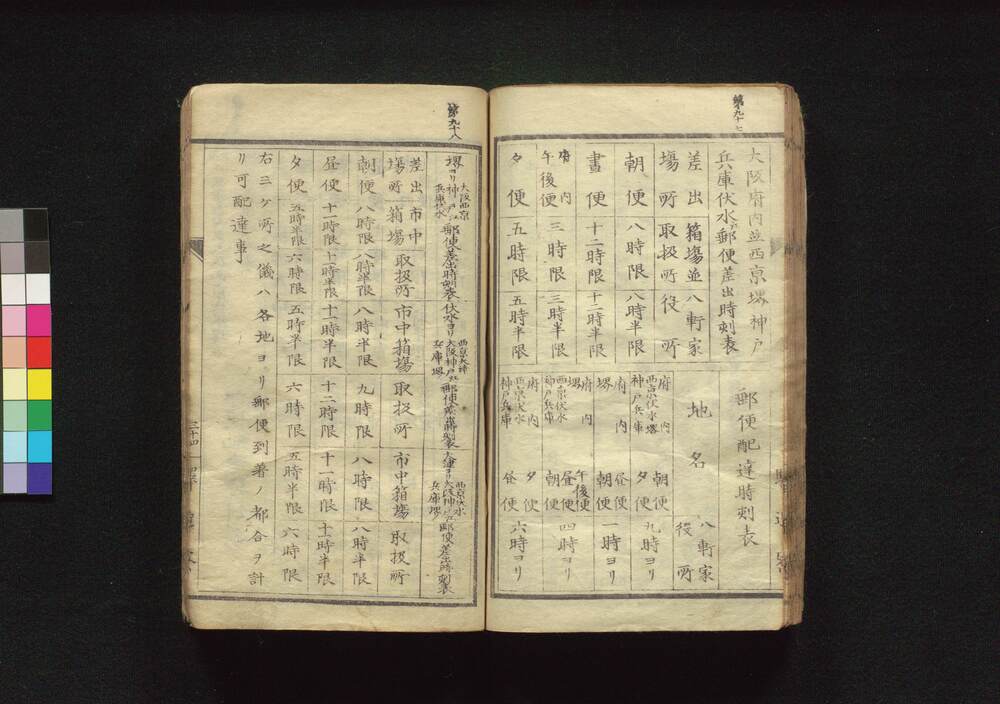 第九十七
大阪府内並西京堺神戸
兵庫伏水ヘ郵便差出時刻表
差出 箱場並 八軒家
場所 取扱所 役所
朝便 八時限 八時半限
晝便 十二時限 十二時半限
府内
午後便 三時限 三時半限
夕便 五時限 五時半限
郵便配達時刻表
地名 八軒家
役所
府内
西京伏水堺
神戸兵庫 朝便 九時ヨリ
府内 昼便
堺 朝便 一時ヨリ
府内 午後便
堺 昼便
西京伏水
神戸兵庫 朝便 四時ヨリ
府内 夕便
西京伏水
神戸兵庫 昼便 六時ヨリ
第九十八
堺ヨリ 大阪西京
神戸
兵庫伏水 郵便差出時刻表
伏水ヨリ 西京大津
大阪神戸
兵庫堺 郵便差出時刻表
西京伏水
大阪神戸
兵庫堺 郵便差出時刻表
差出
場所 市中
箱場 取扱所 市中箱場 取扱所 市中箱場 取扱所
朝便 八時限 八時半限 八時半限 九時限 八時限 八時半限
昼便 十一時限 十一時半限 十一時半限 十二時限 十一時限 十一時半限
夕便 五時半限 六時限 五時半限 六時限 五時半限 六時限
右三ケ所之儀ハ各地ヨリ郵便到著ノ都合ヲ計
リ可配達事
三十四